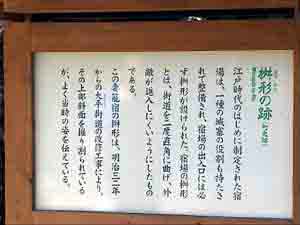 桝形の跡
江戸時代のはじめに制定された宿
場は、一種の城塞の役割も持たさ
れて整備され、宿場の出入口には必
ず桝形が設けられた。宿場の桝形
とは、街道を二度直角に曲げ、外
敵が進入しにくいようにしたもの
である。
この妻籠宿の桝形は、明治三二年
からの大平街道の改修工事により、
その上部斜面を掘り割られている
が、よく当時の姿を伝えている。